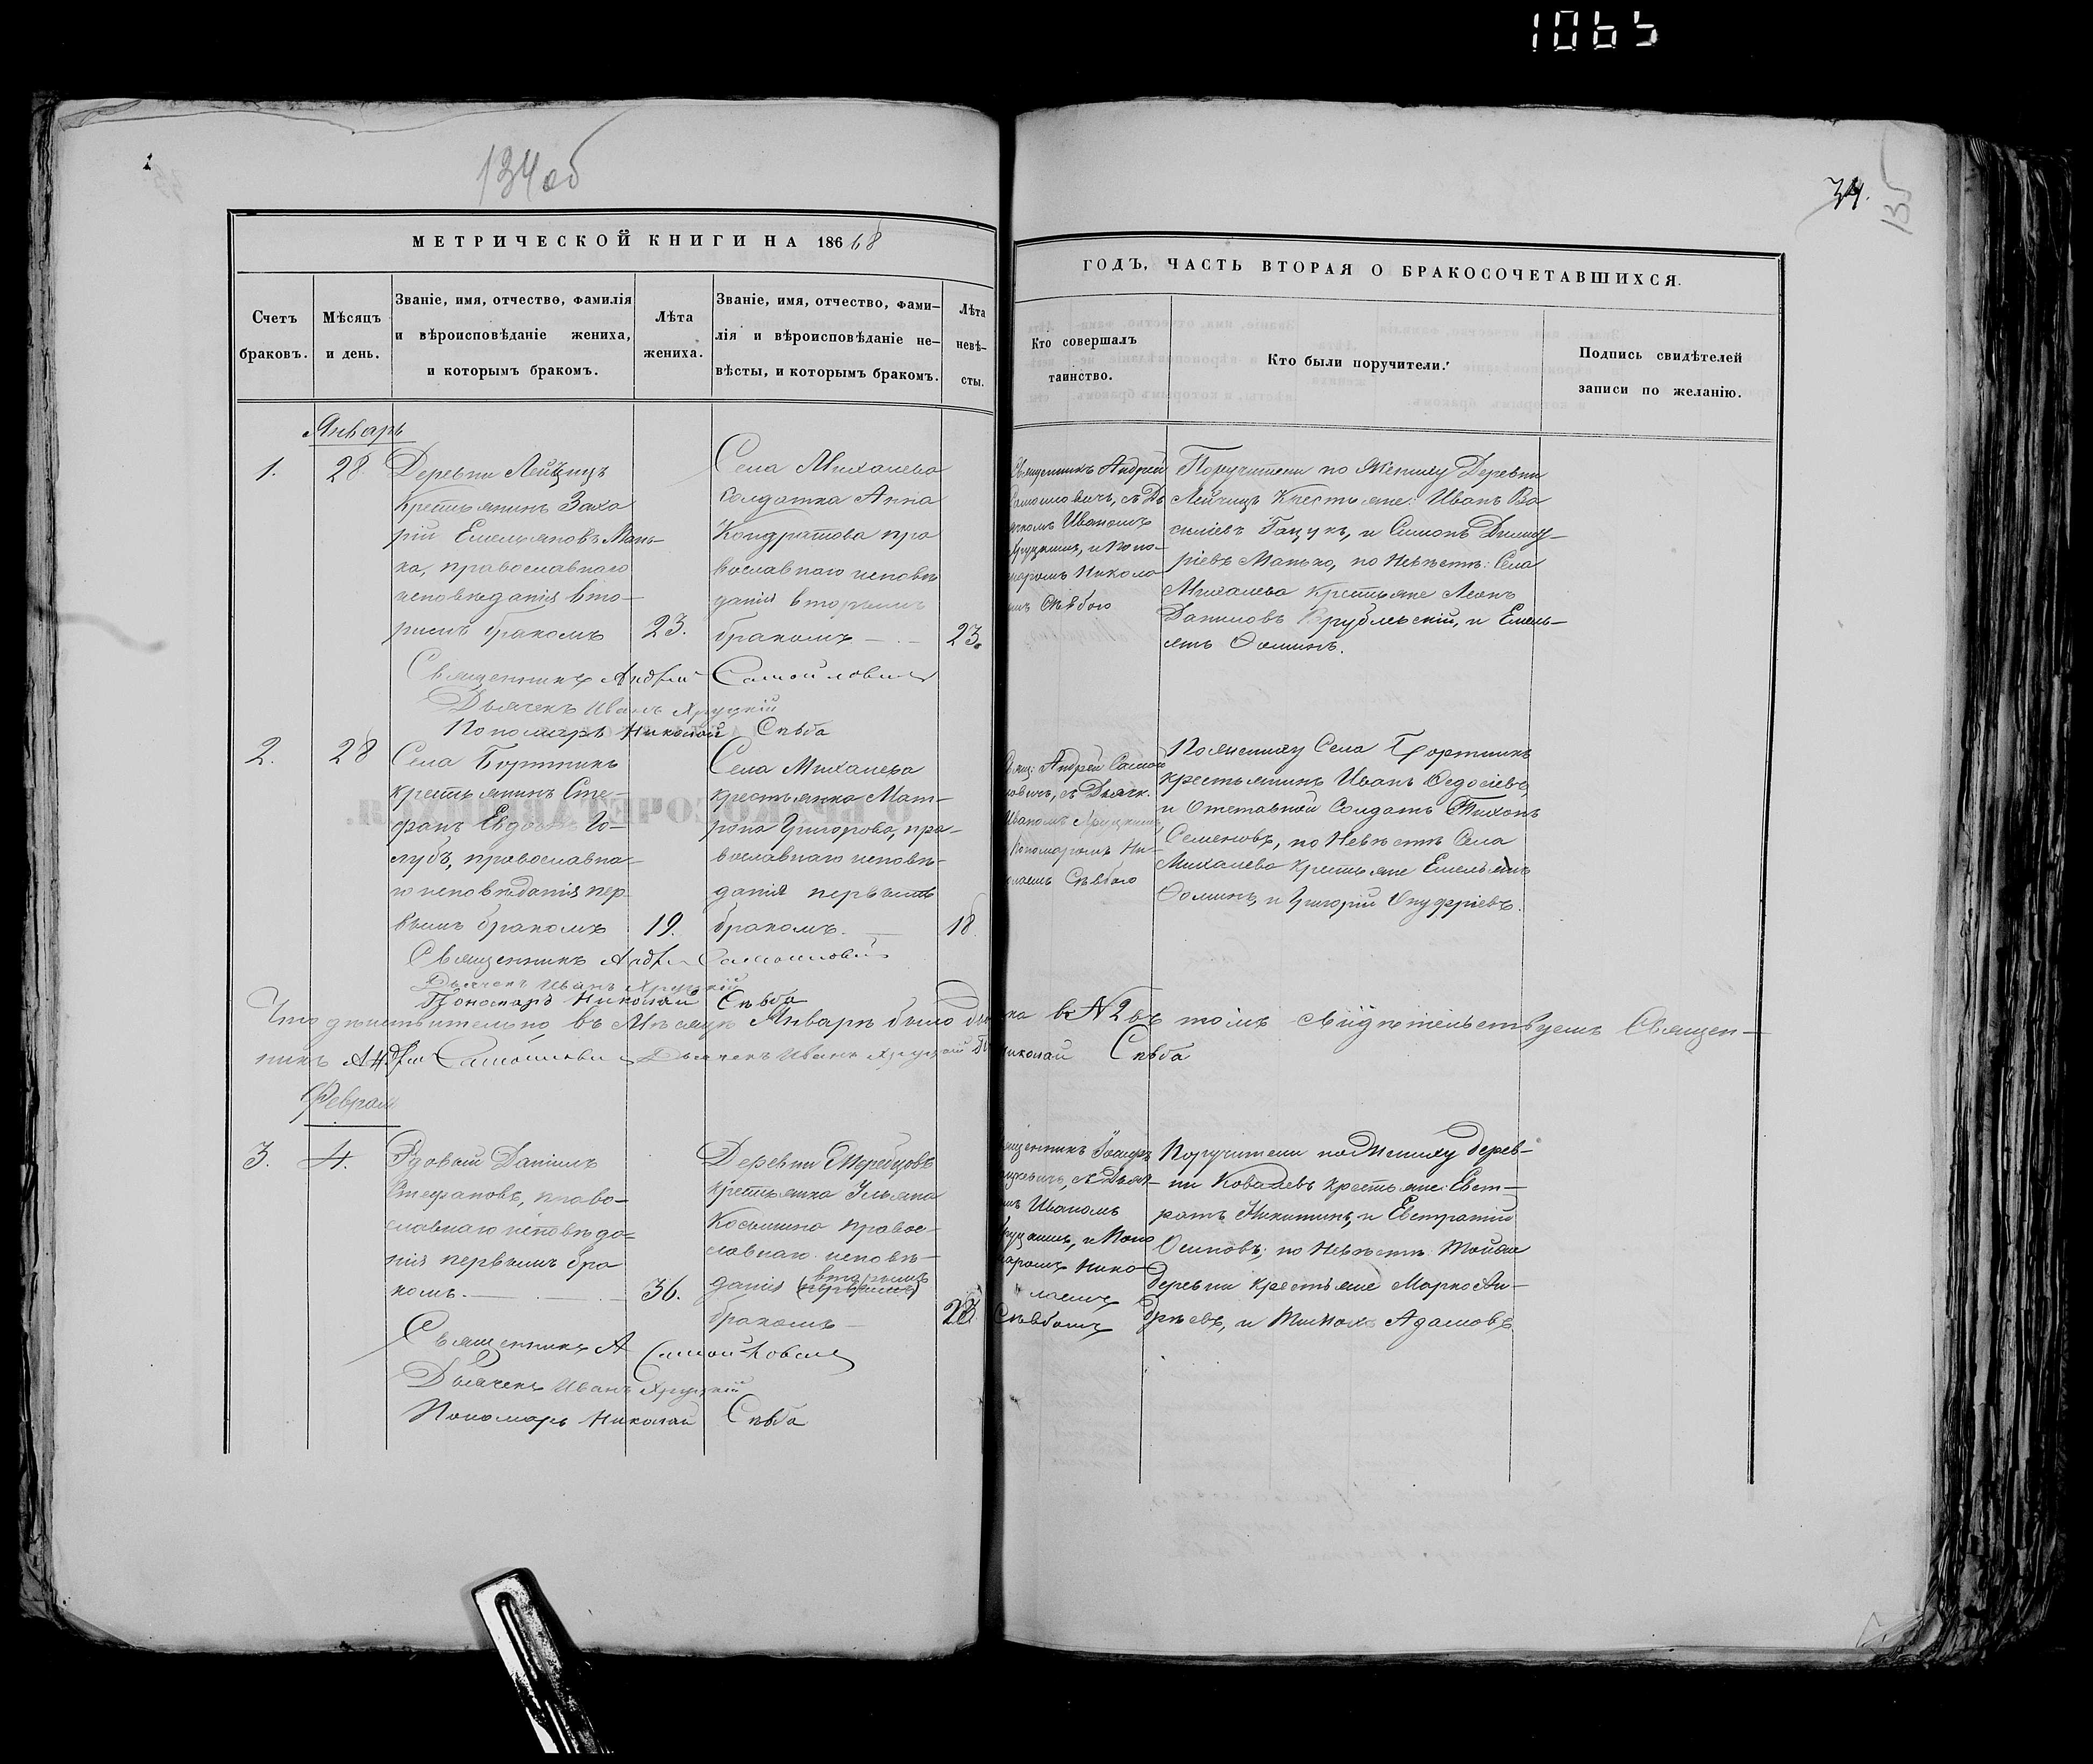 1065
134 об
34.
135
МЕТРИЧЕСКОЙ КНИГИ НА 186 68
ГОДЪ, ЧАСТЬ ВТОРАЯ О БРАКОСОЧЕТАВШИХСЯ.
Счетъ
браковъ.
Мѣсяцъ
и день.
Званіе, имя, отчество, фамилія
и вѣроисповѣданіе жениха,
и которымъ бракомъ.
Лѣта
жениха.
Званіе, имя, отчество, фами-
лія и вѣроисповѣданіе не-
вѣсты, и которымъ бракомъ.
Лѣта
невѣ-
сты.
Кто совершалъ
таинство.
Кто были поручители.
Подпись свидѣтелей
записи по желанію.
Январь
1.
28
Деревни Лейчицъ
Крестьянинъ Заха
рій Емельяновъ Мань-
ко, православнаго
исповѣданія вто-
рымъ бракомъ
23.
Села Михалева
Солдатка Анна
Кондратова пра
вославнаго исповѣ
данія вторымъ
бракомъ
23.
Священникъ Андрей
Самоиловичъ, съ Дь
Иваномъ
Хруцкимъ, и Поно-
маромъ Никола
Сѣвбою
Поручители по Жениху Деревни
Лейчицъ Крестьяне: Иванъ Ва
силіевъ Гацукъ, и Симонъ Димит-
ріевъ Манько, по Невѣстѣ: Села
Михалева Крестьяне Леонъ
Даниловъ Врублевскій, и Емель-
янъ Ѳоминъ.
Священникъ Андрей Самойловичъ
Дьячекъ Иванъ Хруцкій
Пономарь Николай Сѣвба
2.
28
Села Бортникъ
крестьянинъ Сте-
фанъ Го-
лубъ, православна-
го исповѣданія пер
вымъ бракомъ
19.
Села Михалева
крестьянка Мат-
рона Григорова, пра-
вославнаго исповѣ-
данія первымъ
бракомъ.
18.
Андрей Само
ловичъ, съ Дьячк.
Иваномъ Хруцкимъ,
Пономаромъ Ни-
колаемъ Сѣвбою
По жениху Села Бортникъ
крестьянинъ Иванъ Ѳедосіевъ,
и Отставной Солдатъ Тихонъ
Семеновъ, по Невѣстѣ Села
Михалева Крестьяне Емельянъ
Ѳоминъ, и Григорій Онуфріевъ.
Священникъ Андрей Самойловичъ
Дьячекъ Иванъ Хруцкій
Пономарь Николай Сѣвба
Что дѣйствительно въ Мѣсяцѣ Январѣ было бра ка въ N 2 въ томъ свидѣтельствуемъ Священ-
никъ Андрей Самойловичъ Дьячекъ Иванъ Хруцкій Николай Сѣвба
Февраль
3.
4.
Рядовый Даніилъ
Стефановъ, право-
славнаго исповѣда-
нія первымъ бра
комъ.
36.
Деревни Жеребцовъ
крестьянка Ульяна
Косьмина правос-
лавнаго исповѣ-
данія вторымъ (первымъ)
бракомъ
28
Іосифъ
съ Дьяч-
Иваномъ
Хруцкимъ, и Поно
маромъ Нико-
лаемъ
Сѣвбомъ
Поручители по Жениху дерев-
ни Ковалевъ крестьяне: Евст-
ратъ Никитинъ, и Евстратій
Осиповъ; по Невѣстѣ Тойже
деревни крестьяне Марко Ан-
дрѣевъ, и Адамовъ
Священникъ А Самойловичъ
Дьячекъ Иванъ Хруцкій
Пономарь Николай Сѣвба